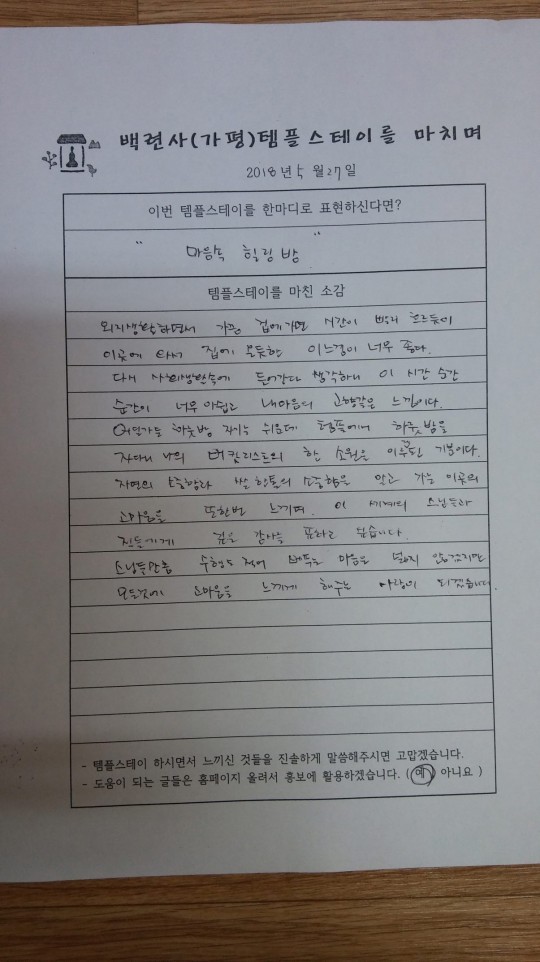 백련사(가평)템플스테이를 마치며
2018년 5월 27일
이번 템플스테이를 한마디로 표현하신다면?
" 마음속 힐링 방 "
템플스테이를 마친 소감
가끔 집에가면 시간이 빨리 흐르듯이
이곳에 와서 집에 온듯한 이느낌이 너무 좋다.
다시 들어간다 생각하니 이 시간 순간
순간이 너무 아쉽고 내마음의 고향같은 느낌이다.
하룻밤 자이는 쉬운데 템플에서 하룻밤을
자다니 나의 버킷리스트의 한 소원을 이룬 기분이다.
자연의 소중함과 쌀 한톨의 소중함을 안고 가는 이곳의
고마움을 또한번 느끼며. 이 세계의 스님들과
진은에게 깊은 감사를 표하고 싶습니다.
스님들만큼 수행도 적어 베푸는 마음을 넓지 않겠지만
모든것에 고마움을 느끼게 해주는 사람이 되겠습니다.
- 템플스테이 하시면서 느끼신 것들을 진솔하게 말씀해주시면 고맙겠습니다.
- 도움이 되는 글들은 홈페이지 올려서 홍보에 활용하겠습니다. ( 예 아니요 )